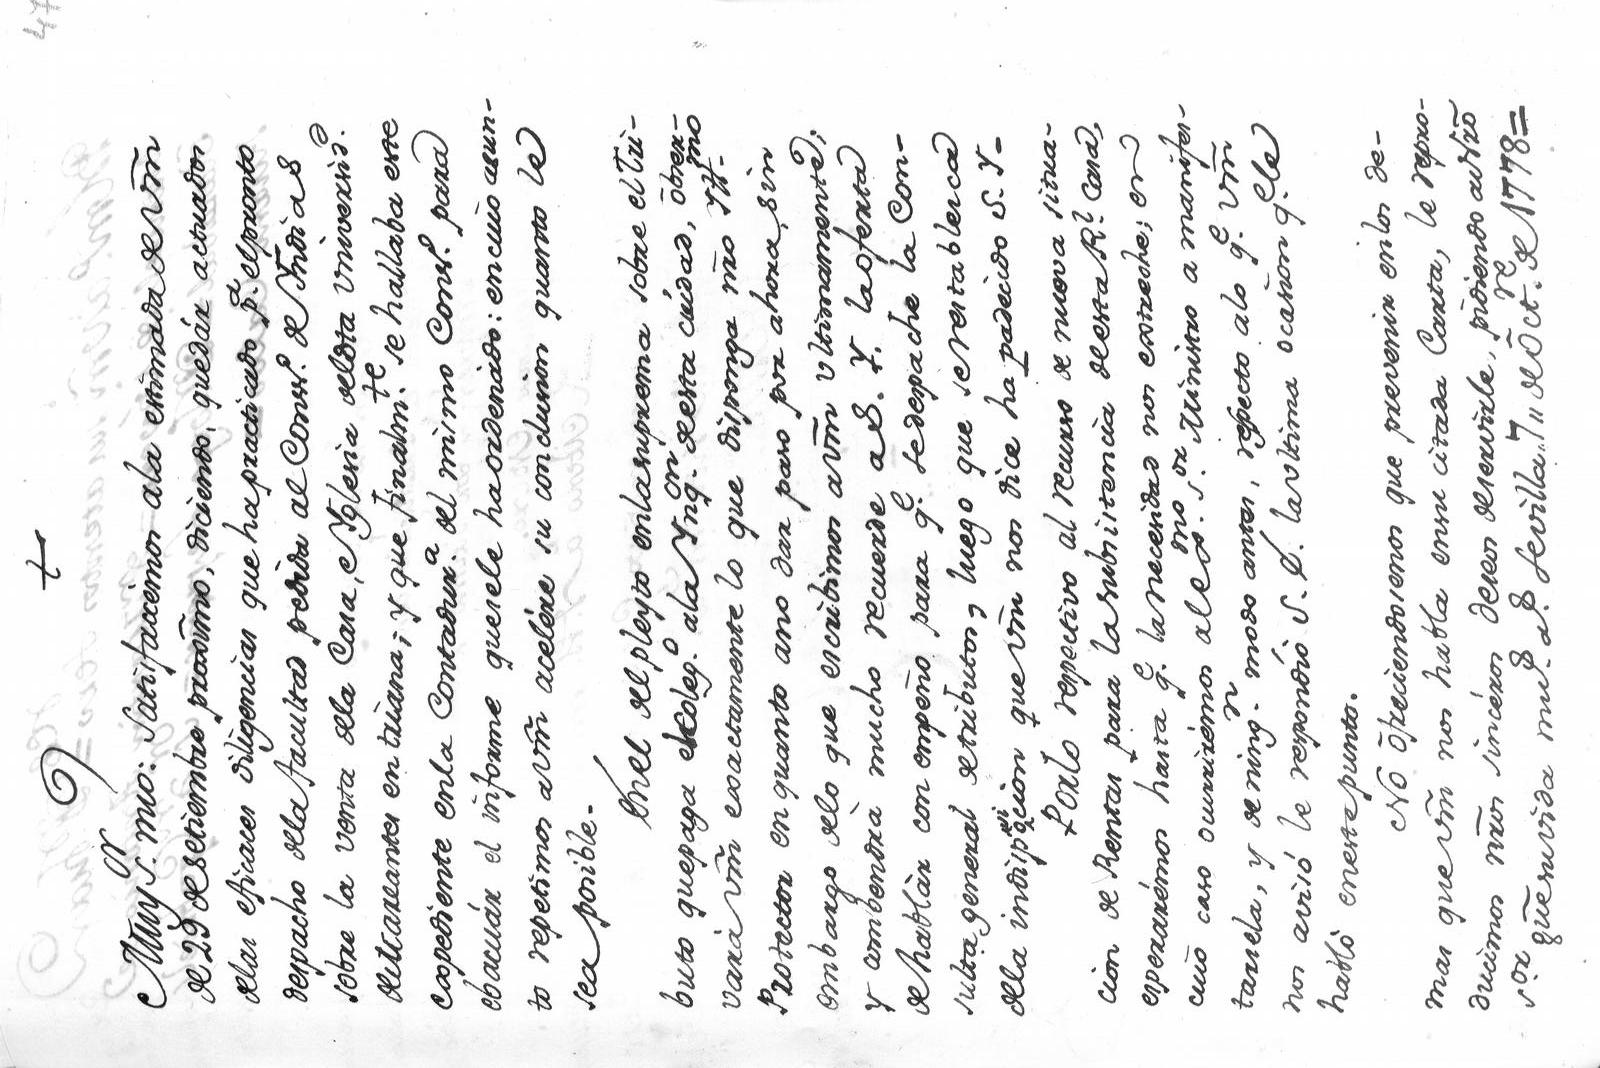 47
+
Muy S.or mio: Satisfacemos ala estimada de vm̃
de 29 de setiembre proxm̃o, diciendo, quedár actuados
delas eficaces diligencias que ha practicado p.ª el pronto
despacho dela facultad pedida al Cons.º de Yndias
sobre la venta dela Casa, e Yglesia de esta universid.d
de Mareantes en triana; y que finalm.te se hallaba este
expediente enla Contadur.a del mismo Cons.º para
ebacuár el informe que se le ha ordenado: en cuio asun-
to repetimos a vm̃ aceléxe su conclusion quanto le
sea posible.
Enel del pleyto enla suprema sobre el Tri-
buto que paga el coleg.o ala Ynq.on de esta ciudad, obser-
vará vm̃ exactamente lo que disponga nr̃o Yll.mo
Protector en quanto ano dar paso por ahora, sin
embargo delo que escribimos a vm̃ ultimamente;
y combendrá mucho recuerde a S. Y. la oferta
de hablár con empeño para q.e se despache la Con-
sulta general de tributos, luego que se restablezca
dela indisposicion que vm̃ nos dice ha padecido S. Y.
Por lo respectivo al recurso de nueva situa-
cion de Rentas para la subsistencia de esta R.l Casa,
esperarémos hasta q.e la necesidad nos estreche; en
cuio caso ocurrirémos al ex.mo s.or Ministro a manifes-
tarsela, y de ning.n modo antes, respecto alo q.e vm̃
nos avisó le respondió S. E. la ultima ocasion q.e le
habló en este punto.
No ofreciendosenos que prevenir enlos de-
mas que vm̃ nos habla en su citada Carta, le repro-
ducimos nr̃os sincéros deseos de servirle, pidiendo a nr̃o
S.or gũe su vida m.s a.s Sevilla 7 de Oct.re de 1778=